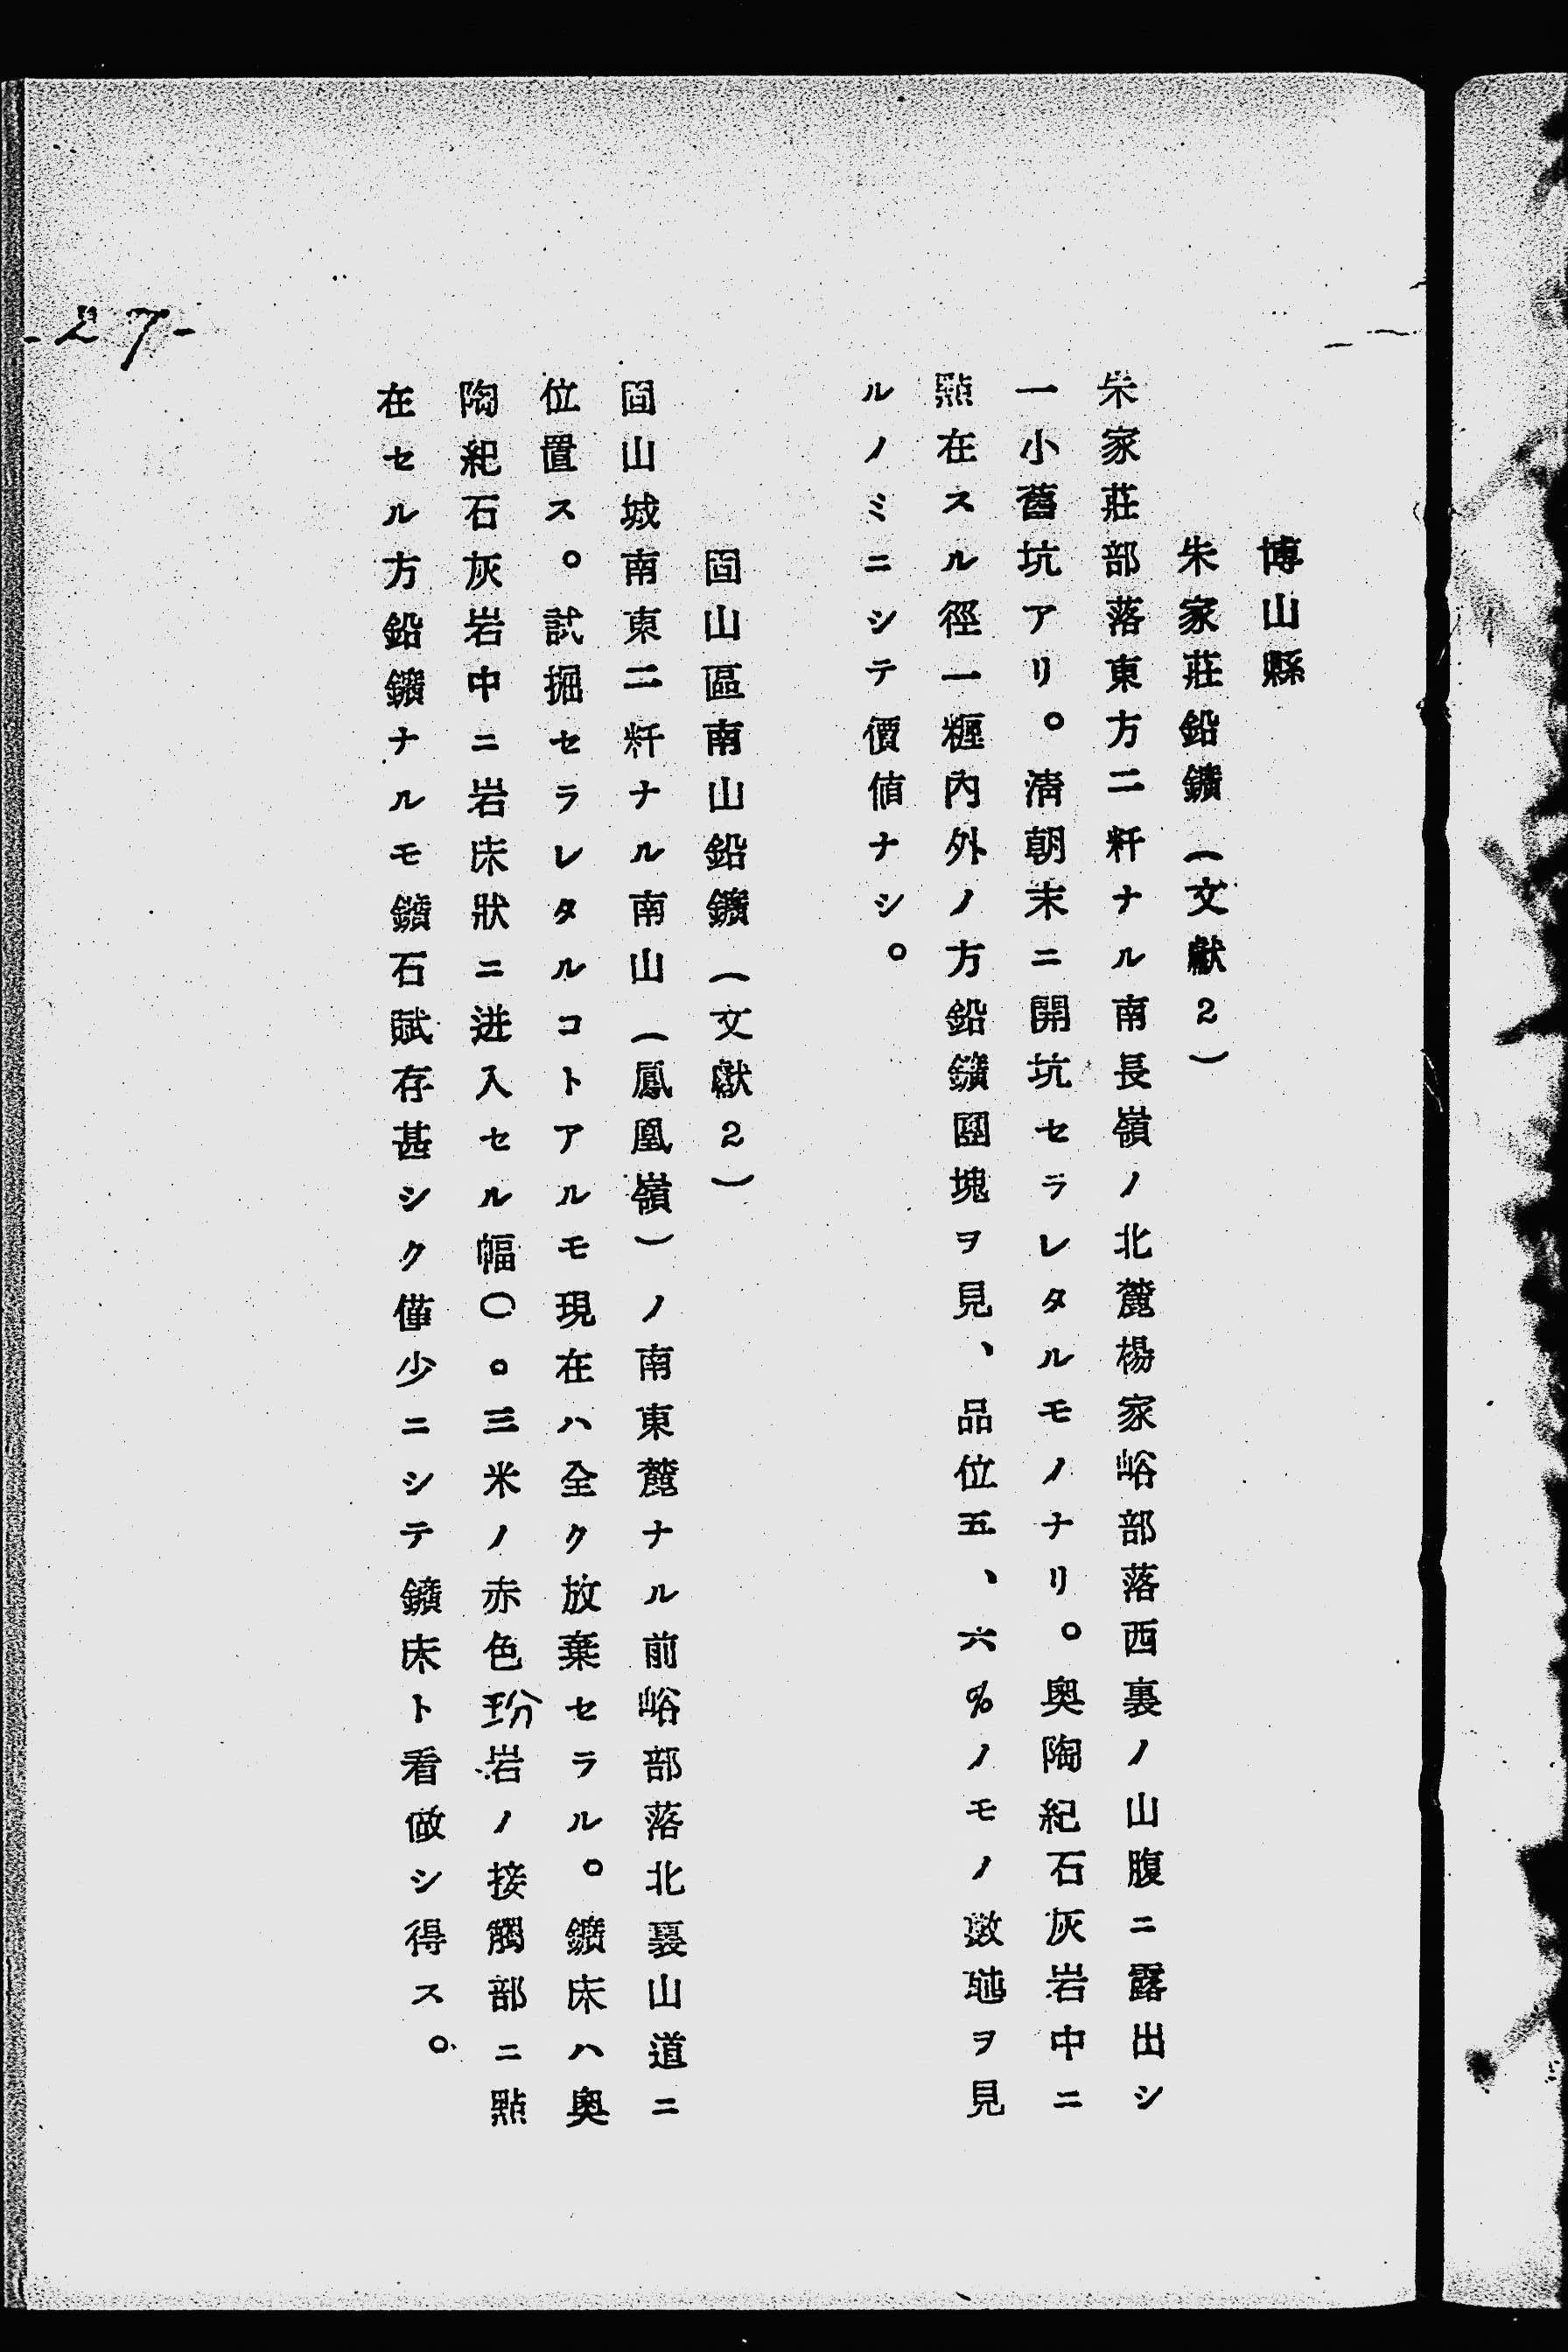 博山縣
朱家莊鉛鑛（文獻2）
朱家莊部落東方二粁ナル南長嶺ノ北麓楊家峪部落西裏ノ山腹ニ露出シ
一小舊坑アリ。淸朝末ニ開坑セラレタルモノナリ。奧陶紀石灰岩中ニ
點在スル徑一糎內外ノ方鉛鑛團塊ヲ見、品位五、六%ノモノ數瓲ヲ見
ルノミニシテ價値ナシ。
固山區南山鉛鑛（文獻2）
固山城南東二粁ナル南山（鳳凰嶺）ノ南東麓ナル前峪部落北裏山道ニ
位置ス。試掘セラレタルコトアルモ現在ハ全ク放棄セラル。鑛床ハ奧
陶紀石灰岩中ニ岩床狀ニ迸入セル幅〇。三米ノ赤色玢岩ノ接觸部ニ點
在セル方鉛鑛ナルモ鑛石賦存甚シク僅少ニシテ鑛床ト看做シ得ス。
-27-